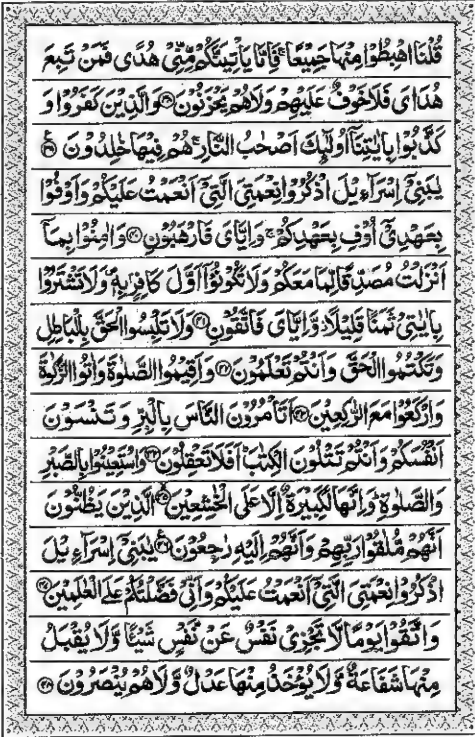 قُلْنَا اهْبِطُوْا مِنْهَا جَمِيْعًا ۚ فَاِمَّا يَاْتِيَنَّكُمْ مِّنِّىْ هُدًى فَمَنْ تَبِعَ
هُدَاىَ فَلَا خَوْفٌ عَلَيْهِمْ وَلَا هُمْ يَحْزَنُوْنَ ﴿۳۸﴾ وَالَّذِيْنَ كَفَرُوْا وَ
كَذَّبُوْا بِاٰيٰتِنَاۤ اُولٰٓئِكَ اَصْحٰبُ النَّارِ ۚ هُمْ فِيْهَا خٰلِدُوْنَ ﴿۳۹﴾
يٰبَنِىْۤ اِسْرَآءِيْلَ اذْكُرُوْا نِعْمَتِىَ الَّتِىْۤ اَنْعَمْتُ عَلَيْكُمْ وَاَوْفُوْا
بِعَهْدِىْۤ اُوْفِ بِعَهْدِكُمْ ۚ وَاِيَّاىَ فَارْهَبُوْنِ ﴿۴۰﴾ وَاٰمِنُوْا بِمَاۤ
اَنْزَلْتُ مُصَدِّقًا لِّمَا مَعَكُمْ وَلَا تَكُوْنُوْۤا اَوَّلَ كَافِرٍۭ بِهٖ ۪ وَلَا تَشْتَرُوْا
بِاٰيٰتِىْ ثَمَنًا قَلِيْلًا ؗ وَّاِيَّاىَ فَاتَّقُوْنِ ﴿۴۱﴾ وَلَا تَلْبِسُوا الْحَقَّ بِالْبَاطِلِ
وَتَكْتُمُوا الْحَقَّ وَاَنْتُمْ تَعْلَمُوْنَ ﴿۴۲﴾ وَاَقِيْمُوا الصَّلٰوةَ وَاٰتُوا الزَّكٰوةَ
وَارْكَعُوْا مَعَ الرّٰكِعِيْنَ ﴿۴۳﴾ اَتَاْمُرُوْنَ النَّاسَ بِالْبِرِّ وَتَنْسَوْنَ
اَنْفُسَكُمْ وَاَنْتُمْ تَتْلُوْنَ الْكِتٰبَ ؕ اَفَلَا تَعْقِلُوْنَ ﴿۴۴﴾ وَاسْتَعِيْنُوْا بِالصَّبْرِ
وَالصَّلٰوةِ ؕ وَاِنَّهَا لَكَبِيْرَةٌ اِلَّا عَلَى الْخٰشِعِيْنَ ﴿۴۵﴾ الَّذِيْنَ يَظُنُّوْنَ
اَنَّهُمْ مُّلٰقُوْا رَبِّهِمْ وَاَنَّهُمْ اِلَيْهِ رٰجِعُوْنَ ﴿۴۶﴾ يٰبَنِىْۤ اِسْرَآءِيْلَ
اذْكُرُوْا نِعْمَتِىَ الَّتِىْۤ اَنْعَمْتُ عَلَيْكُمْ وَاَنِّىْ فَضَّلْتُكُمْ عَلَى الْعٰلَمِيْنَ ﴿۴۷﴾
وَاتَّقُوْا يَوْمًا لَّا تَجْزِىْ نَفْسٌ عَنْ نَّفْسٍ شَيْـًٔا وَّلَا يُقْبَلُ
مِنْهَا شَفَاعَةٌ وَّلَا يُؤْخَذُ مِنْهَا عَدْلٌ وَّلَا هُمْ يُنْصَرُوْنَ ﴿۴۸﴾